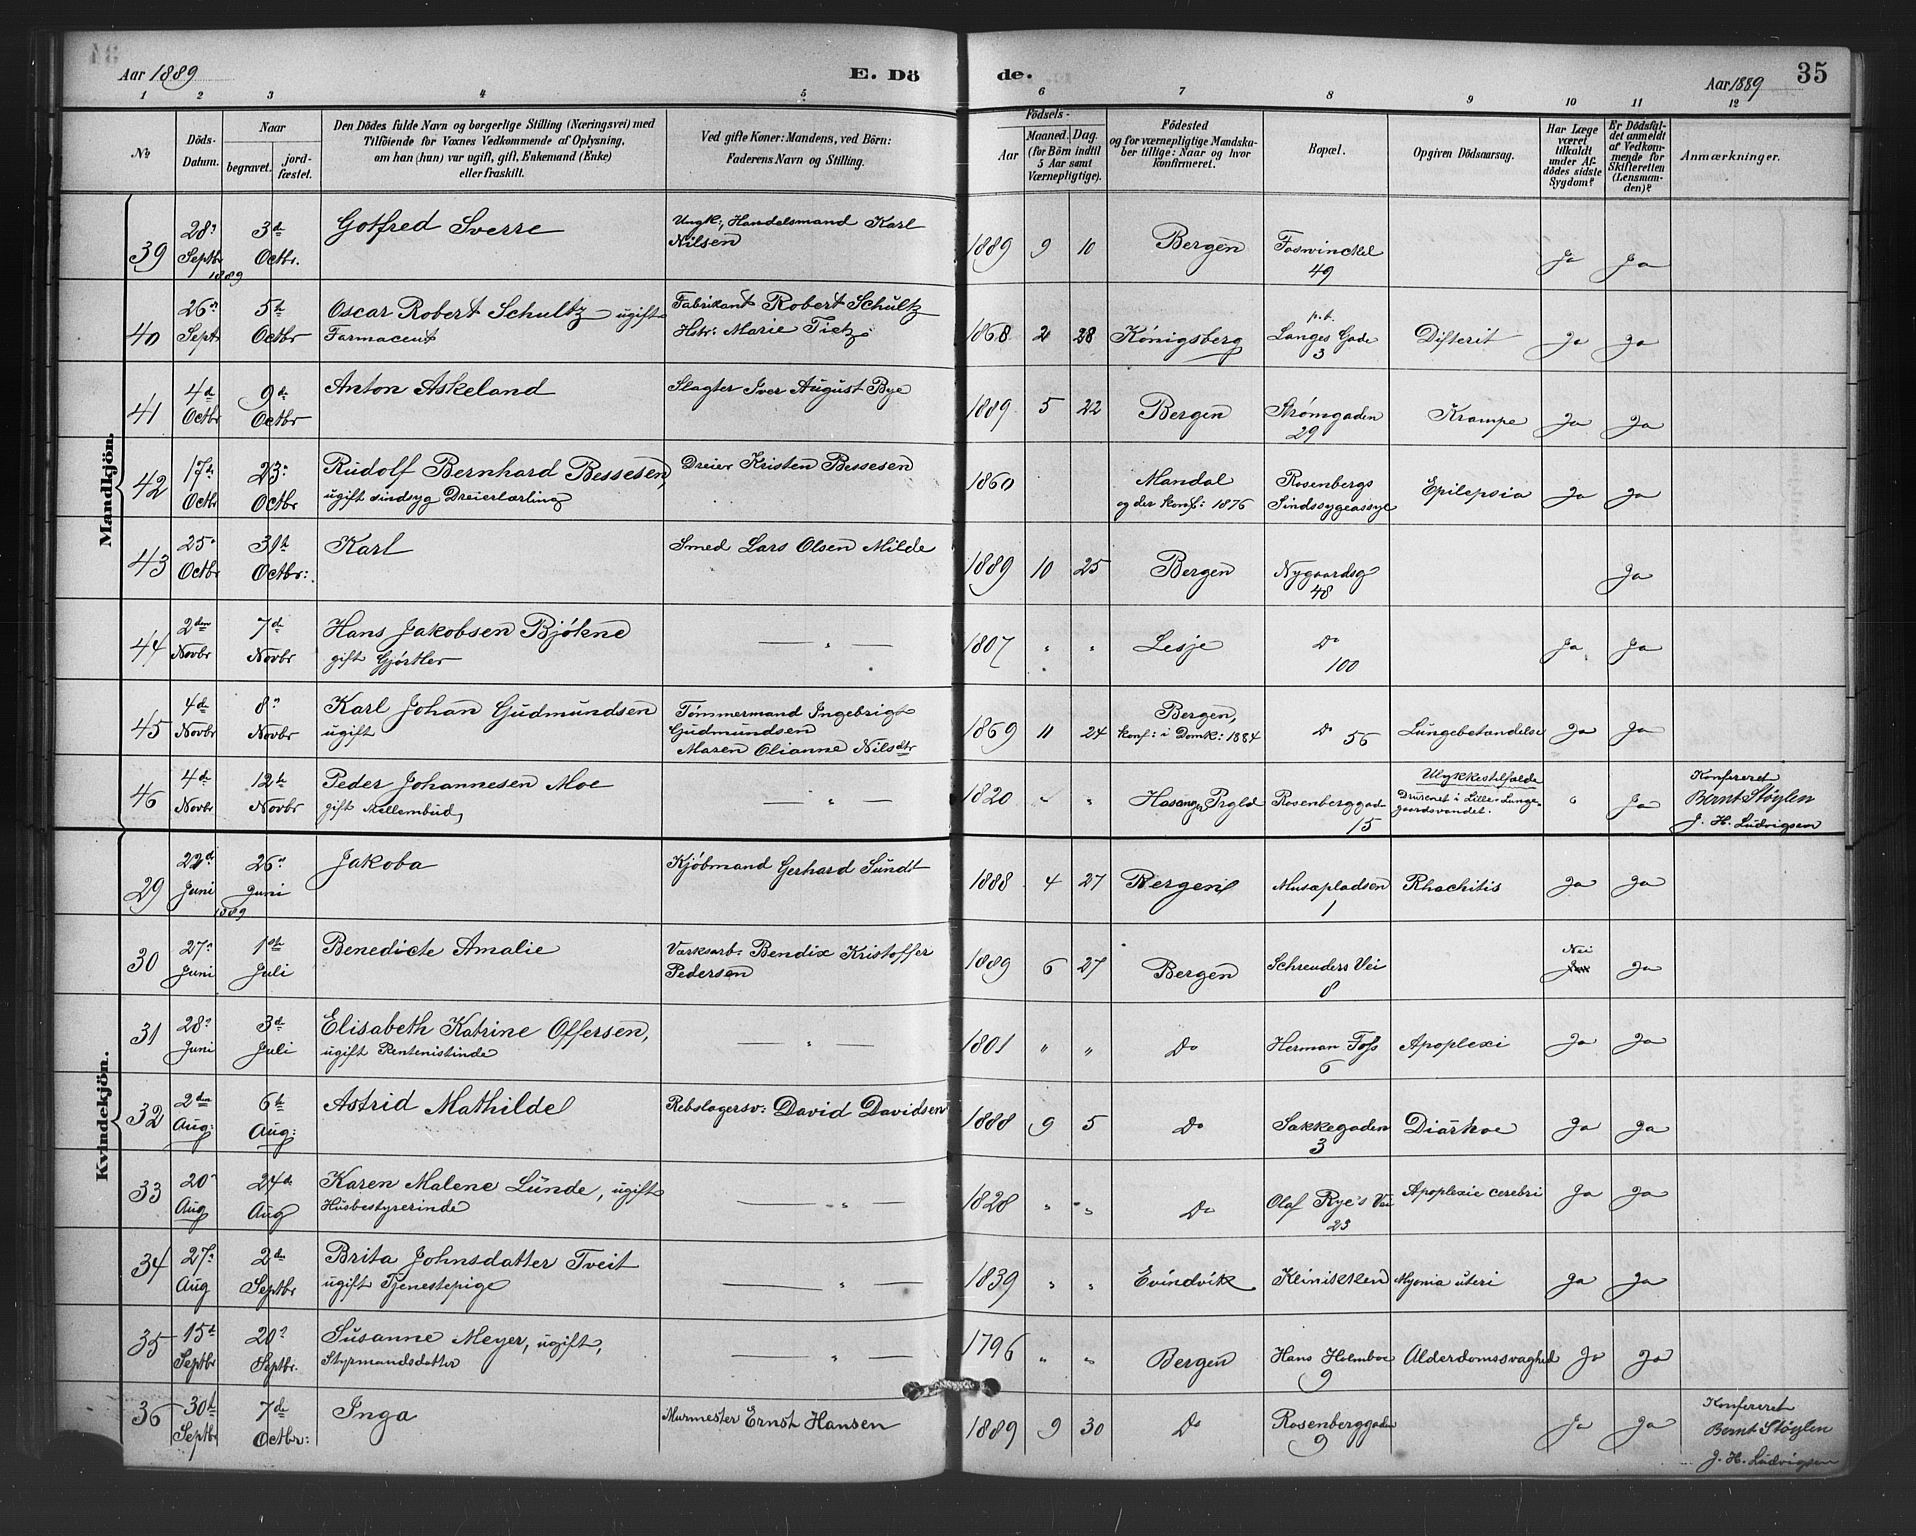 Aar 1889
E. Dö
de.
Aar 1889
35
1 2 3 4 5 6 7 8 9 10 11 12
No
Döds-Datum.
Naar
begravet.
jord-fæstet.
Den Dödes fulde Navn og borgerlige Stilling (Næringsvei) med
Tilföiende for Voxnes Vedkommende af Oplysning,
om han (hun) var ugift, gift, Enkemand (Enke)
eller fraskilt.
Ved gifte Koner: Mandens, ved Börn:
Faderens Navn og Stilling.
Födsels-
Aar
Maaned. Dag.
(for Börn indtil
5 Aar samt
Værnepligtige).
Födested
og for værnepligtige Mandska-
ber tillige: Naar og hvor
konfirmeret.
Bopæl.
Opgiven Dödsaarsag.
Har Læge
været
tilkaldt
under Af-
dödes sidste
Sygdom?
Er Dödsfal-
det anmeldt
af Vedkom-
mende for
Skifteretten
(Lensman-
den)?
Anmærkninger.
Mandkjön.
39 28 Septbr 1889 3d Octbr. Gotfred Sverre Ungk; Handelsmand Karl Nilsen 1889 9 10 Bergen Foswinckel 49 Ja Ja
40 26 Sept 5t Octbr Oscar Robert Schultz ugift Farmaceut Fabrikant Robert Schultz Hstr: Marie Tietz 1868 2 28 Königsberg p.t. Langes Gade 3 Difterit Ja Ja
41 4d Octbr 9d Octbr Anton Askeland Slagter Iver August Bye 1889 5 22 Bergen Strømgaden 29 Krampe Ja Ja
42 17t Octbr 23 Octbr Rudolf Bernhard Bessesen, ugift sindsyg Dreierlærling Dreier Kristen Bessesen 1860 Mandal og der konf: 1876 Rosenbergs Sindssygeassyl Epilepsia Ja Ja
43 25 Octbr 31t Octbr: Karl Smed Lars Olsen Milde 1889 10 25 Bergen Nygaardsg 48 Ja
44 2den Novbr 7d Novbr Hans Jakobsen Bjøkne gift Gjørtler — „ — 1807 „ „ Lesje Do 100 Ja Ja
45 4de Novbr 8 Novbr Karl Johan Gudmundsen ugift Tømmermand Ingebrigt Gudmundsen Maren Olianne Nilsdtr 1869 11 24 Bergen, konf: i Domk: 1884 Do 56 Lungebetændelse Ja Ja
46 4d Novbr 12t Novbr Peder Johannesen Moe gift Mellembud, — „ — 1820 „ „ Prgld Rosenberggad 15 Ulykkestilfælde Druknet i Lille-Lunge-gaardsvandet. „ Ja Konfereret Bernt Støylen J. H. Ludvigsen
Kvindekjön.
29 22d Juni 1889 26 Juni Jakoba Kjøbmand Gerhard Sundt 1888 4 27 Bergen Musæpladsen 1 Rhachitis Ja Ja
30 27 Juni 1ste Juli Benedicte Amalie Værksarb. Bendix Kristoffer Pedersen 1889 6 27 Bergen Schreuders Vei 8 Nei Ja
31 28 Juni 3d Juli Elisabeth Katrine Offersen, ugift Rentenistinde — „ — 1801 „ „ Do Herman Foss 6 Apoplexi Ja Ja
32 2den Aug: 6t Aug: Astrid Mathilde Rebslagersv: David Davidsen 1888 9 5 Do Sakkegaden 3 Diärhoe Ja Ja
33 20 Aug 24d Aug Karen Malene Lunde, ugift Husbestyrerinde — „ — 1828 „ „ Do Olaf Rye's Vei 23 Apoplexie cerebri Ja Ja
34 27 Aug 2d Septbr Brita Johnsdatter Tveit ugift Tjenestepige — „ — 1839 „ „ Evindvik Klinikken Myomia uteri Ja Ja
35 15t Septbr 20 Septbr. Susanne Meyer, ugift, Styrmandsdatter — „ — 1796 „ „ Bergen Hans Holmboe 9 Alderdomssvaghed Ja Ja
36 30t Septbr 7de Octbr: Inga Murmester Ernst Hansen 1889 9 30 Do Rosenberggaden 9 Ja Ja Konfereret Bernt Støylen J. H. Ludvigsen